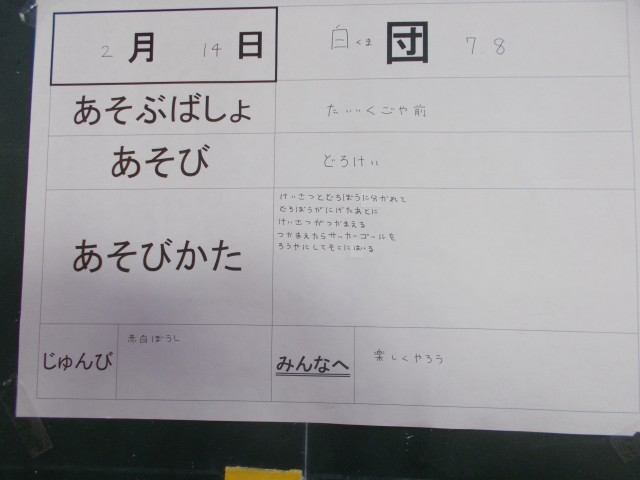 2 月 14 日
白くま 団 78
あそぶばしょ
たいいくごや前
あそび
どろけい
あそびかた
けいさつとどろぼうに分かれて
どろぼうがにげたあとに
けいさつがつかまえる
つかまえたらサッカーゴールを
ろうやにしてそこにはいる
じゅんび
赤白ぼうし
みんなへ
楽しくやろう